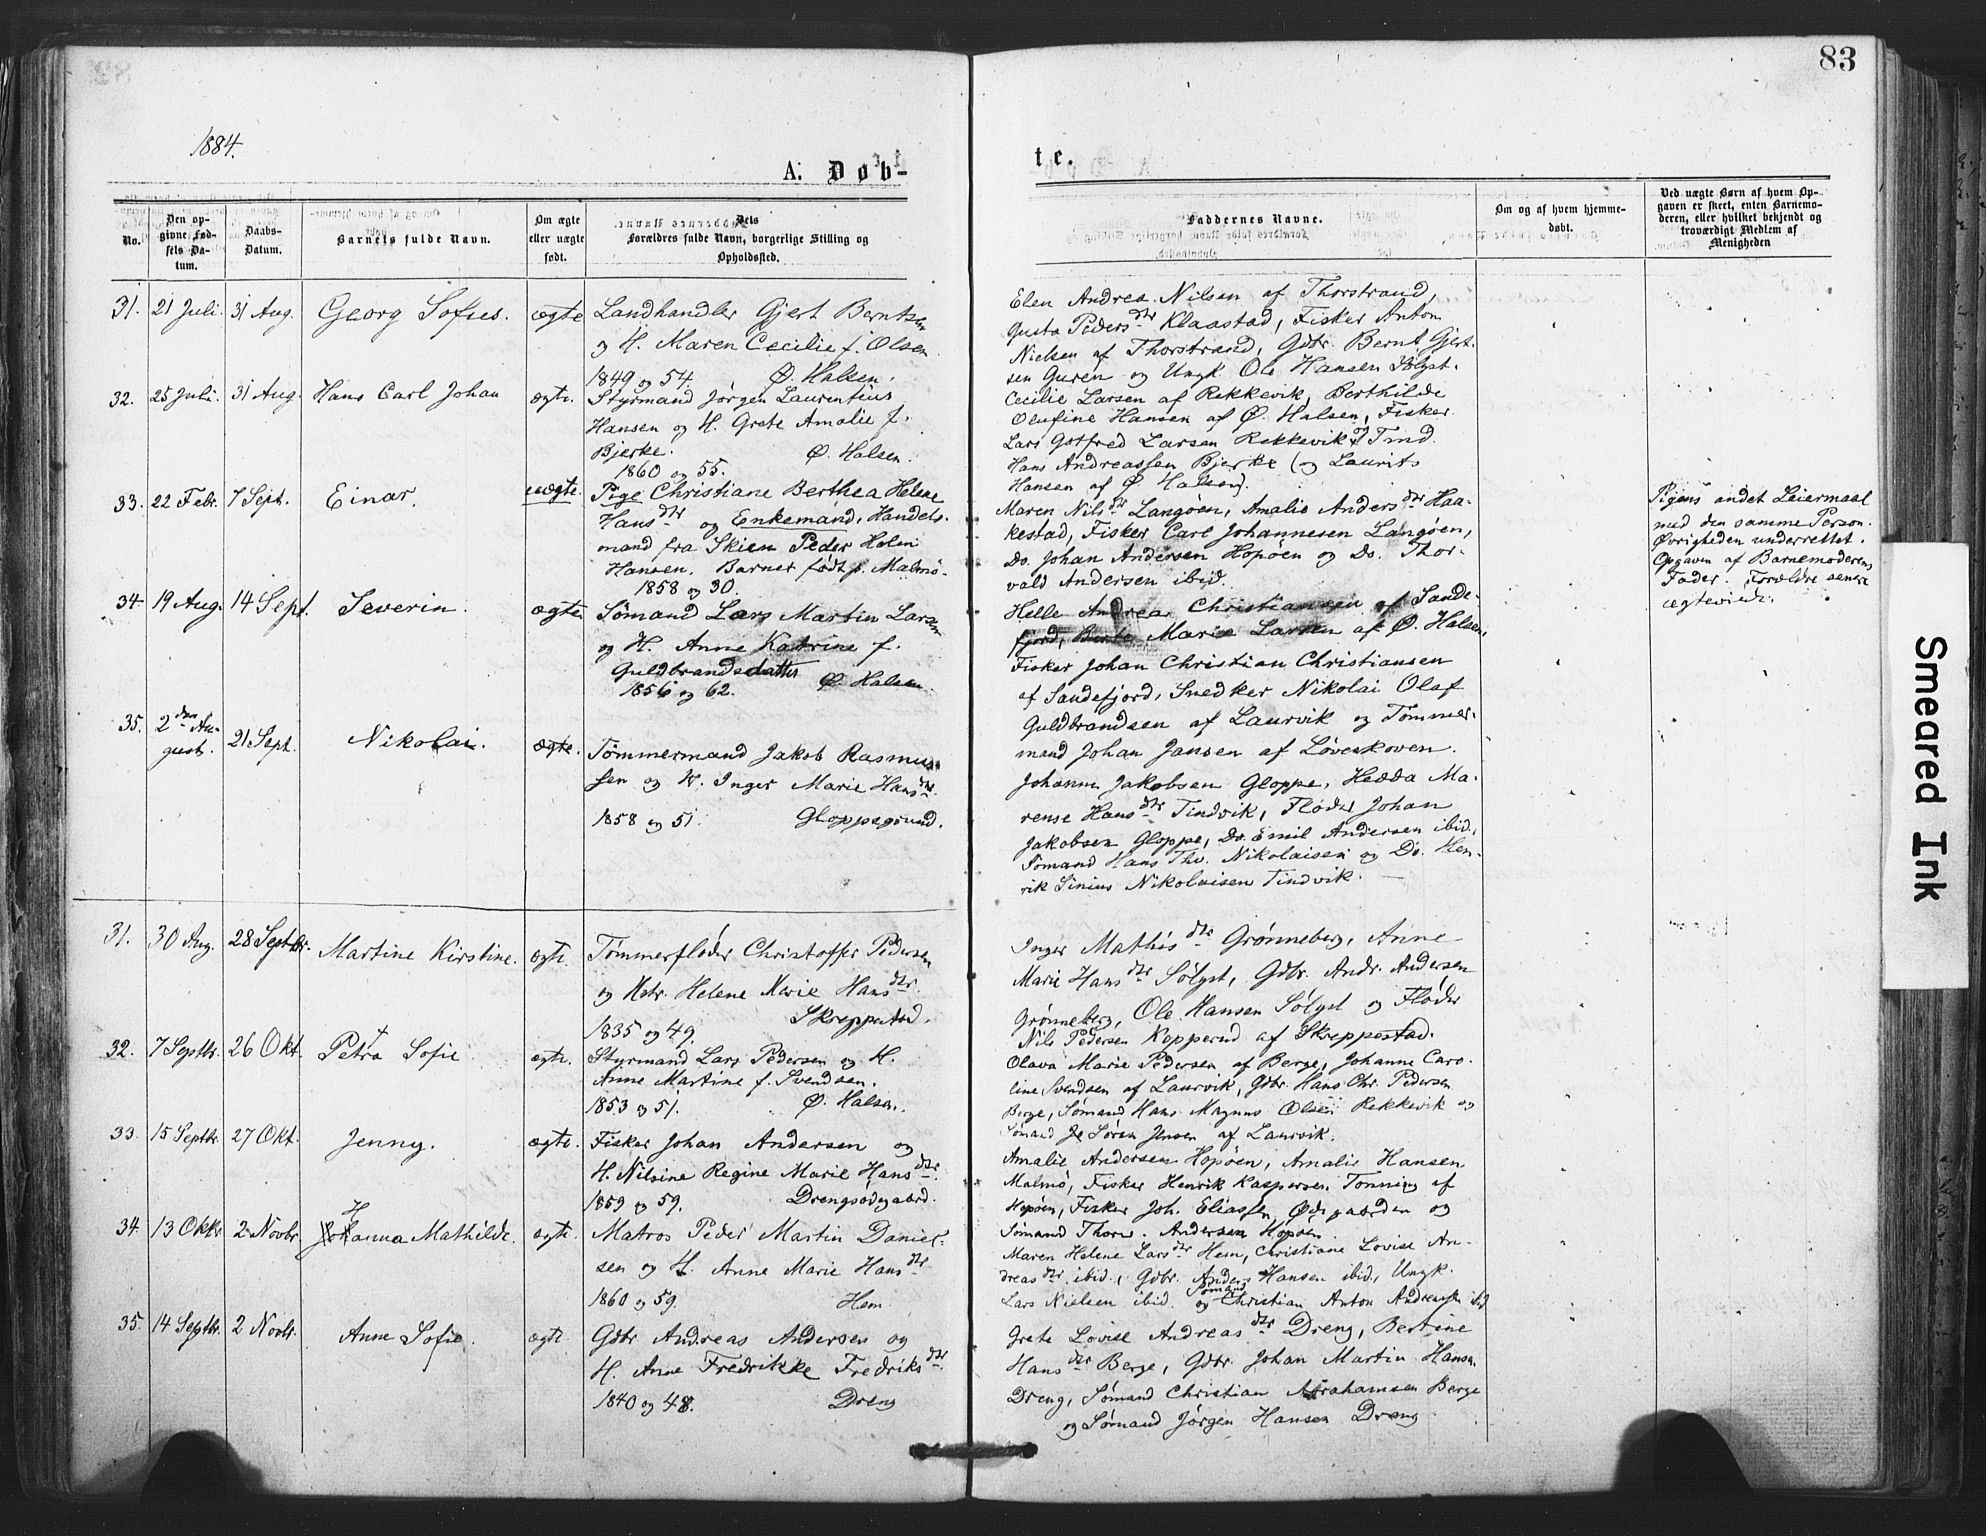 83
1884.
A. Døb-
te.
No.
Den op-
givne Fød-
sels Da-
tum.
Daabs-
Datum.
Barnets fulde Navn.
Om ægte
eller uægte
født.
Dets
Forældres fulde Navn, borgerlige Stilling og
Opholdssted.
Faddernes Navne.
Om og af hvem hjemme-
døbt.
Ved uægte Børn af hvem Op-
gaven er skeet, enten Barnemo-
deren, eller hvilket bekjendt og
troværdigt Medlem af
Menigheden
31. 21 Juli. 31 Aug. Georg Sofus. ægte
Landhandler Gjert Berntsen
og H. Maren Cecilie f. Olsen.
1849 og 54. Ø. Halsen.
Elen Andrea Nilsen af Thorstrand,
Gusta Pedersdtr Klaastad, Fisker Anton
Nielsen af Thorstrand, Gdbr. Bernt Gjert-
sen Guren og Ungk. Ole Hansen Sølyst.
32. 25 Juli. 31 Aug. Hans Carl Johan ægte.
Styrmand Jørgen Laurentius
Hansen og H. Grete Amalie f.
Bjerke. Ø. Halsen.
1860 og 55.
Cecilie Larsen af Rekkevik, Berthilde
Olufine Hansen af Ø. Halsen, Fisker
Lars Gotfred Larsen Rekkevik, og Tmd.
Hans Andreassen Bjerke (og Laurits
Hansen af Ø. Halsen).
33. 22 Febr. 7 Sept. Einar. uægte.
Pige Christiane Berthea Helene
Hansdtr og Enkemand, Handels-
mand fra Skien Peder Holm
Hansen. Barnet født p. Malmø.
1858 og 30.
Maren Nilsdtr Langøen, Amalie Andersdtr Haa-
kestad, Fisker Carl Johannesen Langøen,
Do. Johan Andersen Hopøen og Do. Thor-
vald Andersen ibid.
Pigens andet Leiermaal
med den samme Person.
Øvrigheden underrettet.
Opgaven af Barnemoderens
Fader. Forældre senere
ægteviede.
34. 19 Aug. 14 Sept. Severin. ægte
Sømand Lars Martin Larsen
og H. Anne Katrine f.
Guldbrandsdatter Ø. Halsen.
1856 og 62.
Helle Andrea Christiansen af Sande-
fjord, Marie Larsen af Ø. Halsen,
Fisker Johan Christian Christiansen
af Sandefjord, Snedker Nikolai Olaf
Guldbrandsen af Laurvik og Tømmer-
mand Johan Jansen af Løveskoven.
35. 2den Au-
gust. 21 Sept. Nikolai. ægte.
Tømmermand Jakob Rasmus-
sen og H. Inger Marie Hansdtr.
1858 og 51. Gloppegrund.
Johanne Jakobsen Gloppe, Hedda Ma-
rense Hansdtr Tindvik, Fløder Johan
Jakobsen Gloppe, Do. Emil Andersen ibid.,
Sømand Hans Thv. Nikolaisen og Do. Hen-
rik Sinius Nikolaisen Tindvik.
31. 30 Aug. 28 Septbr. Martine Kirstine. ægte.
Tømmerfløder Christoffer Pedersen
og Hstr. Helene Marie Hansdtr.
1835 og 49. Skreppestad.
Inger Mathisdtr Grønneberg, Anne
Marie Hansdtr Sølyst, Gdbr. Andr. Andersen
Grønneberg, Ole Hansen Sølyst og Fløder
Nils Pedersen Kopperud af Skreppestad.
32. 7 Septbr. 26 Okt. Petra Sofie. ægte.
Styrmand Lars Pedersen og H.
Anne Martine f. Svendsen.
1853 og 51. Ø. Halsen.
Olava Marie Pedersen af Berge, Johanne Caro-
line Svendsen af Laurvik, Gdbr. Hans Chr. Pedersen
Berge, Sømand Hans Magnus Olsen Rekkevik og
Sømand Søren Jensen af Laurvik.
33. 15 Septbr. 27 Okt. Jenny. ægte.
Fisker Johan Andersen og
H. Nilsine Regine Marie Hansdtr.
1859 og 59. Drengsødegaard.
Amalie Andersen Hopøen, Amalie Hansen
Malmø, Fisker Henrik Kaspersen Tonning af
Hopøen, Fisker Joh. Eliassen Ødegaarden og
Sømand Thorw. Andersen Hopøen.
34 13 Oktr. 2 Novbr. Johanna Mathilde. ægte.
H
Matros Peder Martin Daniel-
sen og H. Anne Marie Hansdtr
1860 og 59. Hem.
Maren Helene Larsdtr Hem, Christiane Lovise An-
dreasdtr ibid., Gdbr. Anders Hansen ibid., Ungk.
Lars Nielsen ibid. og Sømand Christian Anton Andreassen ibid
35. 14 Septbr. 2 Novbr. Anne Sofie. ægte.
Gdbr Andreas Andersen og
H. Anne Fredrikke Fredriksdtr.
1840 og 48. Dreng
Grete Lovise Andreasdtr Dreng, Bertine
Hansdtr Berge, Gdbr. Johan Martin Hansen
Dreng, Sømand Christian Abrahamsen Berge
og Sømand Jørgen Hansen Dreng
Smeared Ink